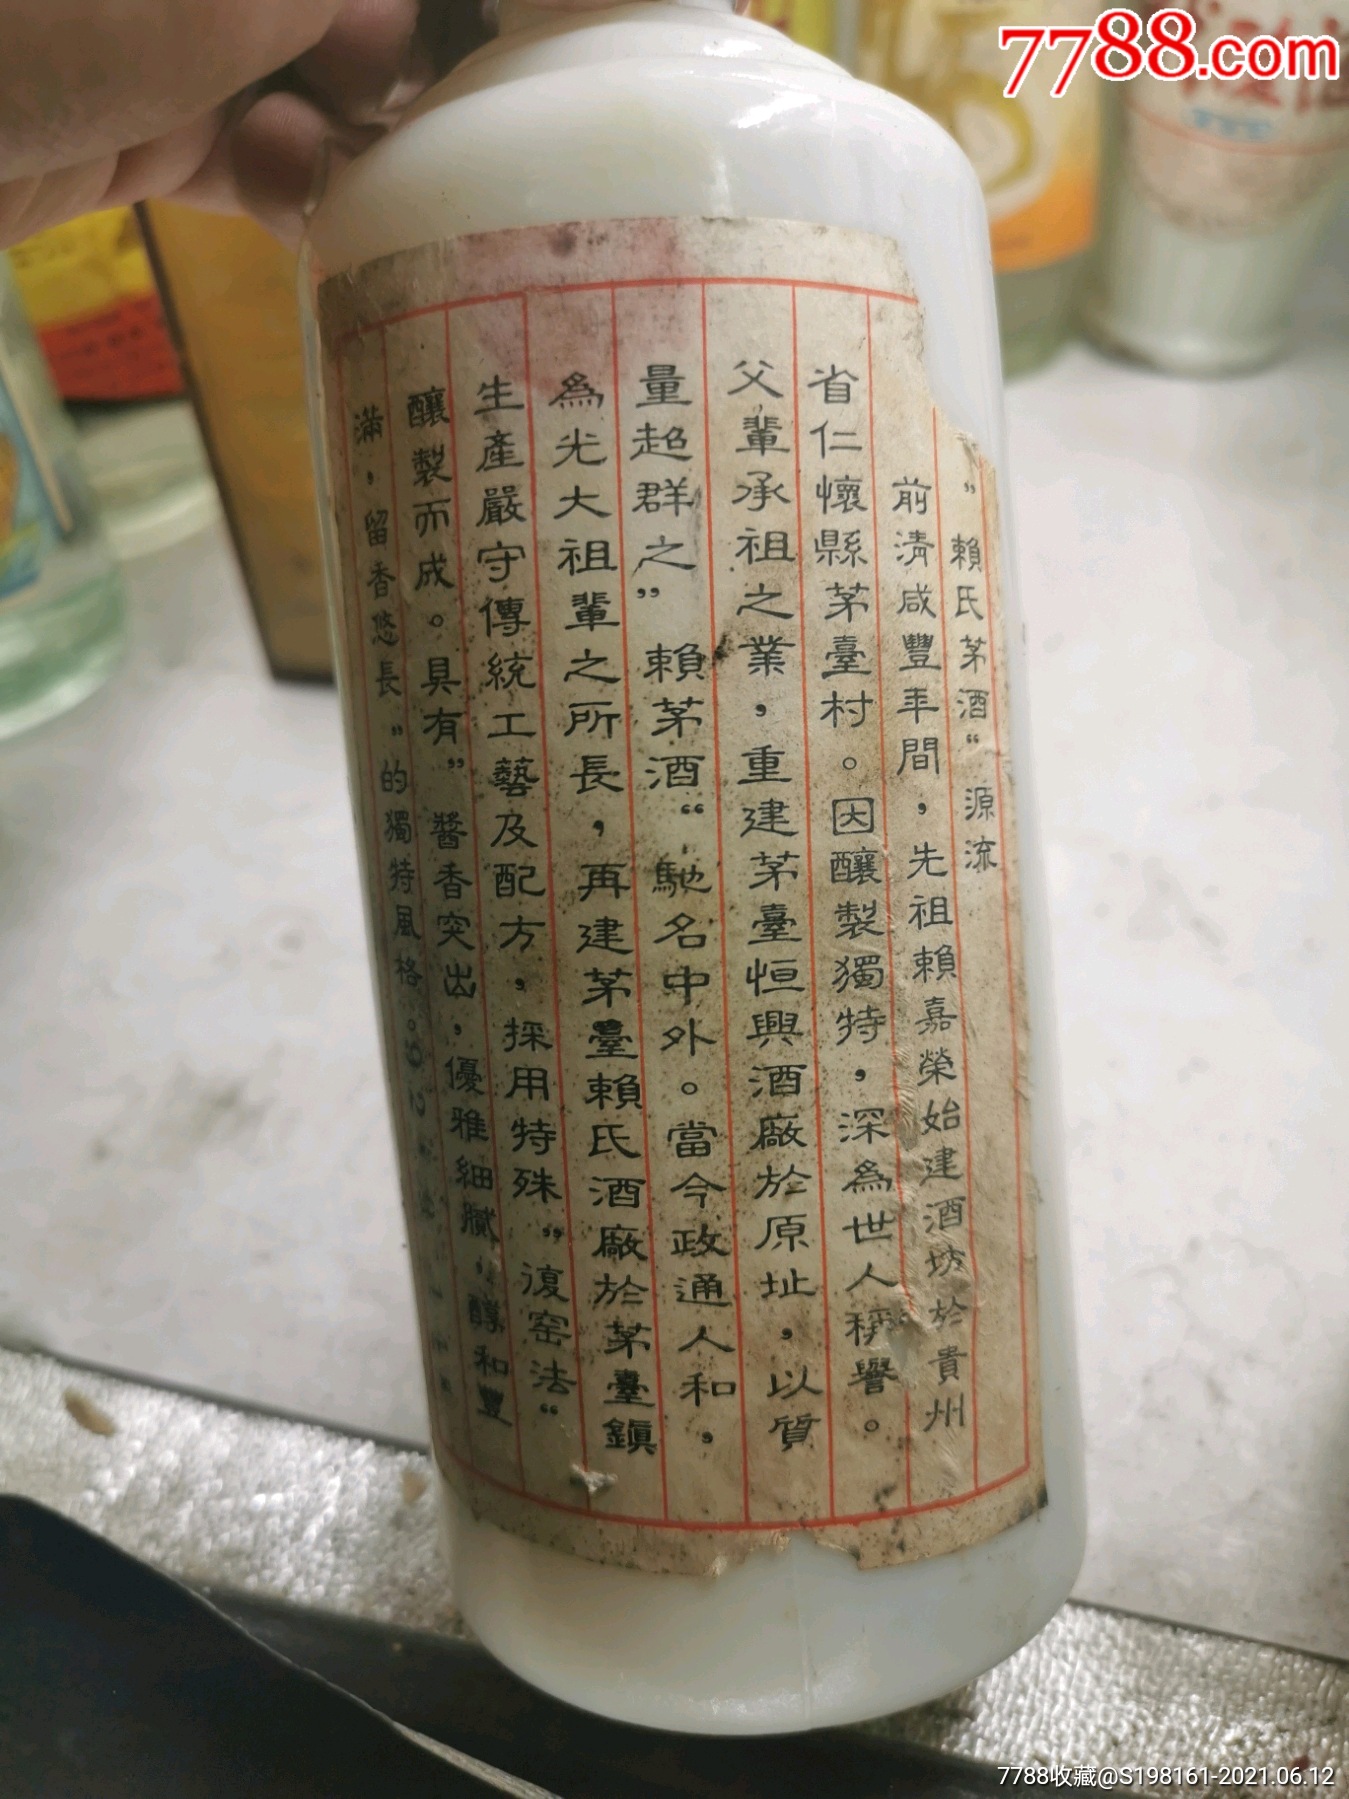 7788.com
”賴氏茅酒“源流
前清咸豐年間，先祖賴嘉榮始建酒坊於貴州
省仁懷縣茅臺村。因釀製獨特，深為世人稱譽。
父輩承祖之業，重建茅臺恒興酒廠於原址，以質
量超群之”賴茅酒“馳名中外。當今政通人和，
為光大祖輩之所長，再建茅臺賴氏酒廠於茅臺鎮
生產嚴守傳統工藝及配方，採用特殊”復窑法“
釀製而成。具有”醬香突出，優雅細膩，醇和豐
滿，留香悠長”的獨特風格。
7788收藏@S198161-2021.06.12